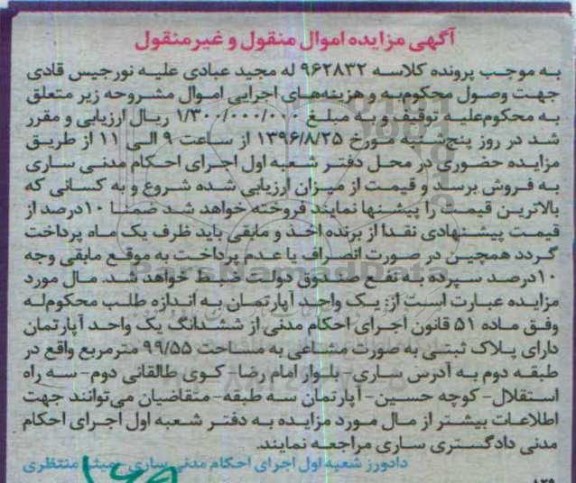 آگهی مزایده اموال منقول و غیرمنقول
به موجب پرونده کلاسه ۹۶۲۸۳۲ له مجید عبادی علیه نورجیس قادی
جهت وصول محکوم‌به و هزینه‌های اجرایی اموال مشروحه زیر متعلق
به محکوم‌علیه توقیف و به مبلغ ۱/۳۰۰/۰۰۰/۰۰۰ ریال ارزیابی و مقرر
شد در روز پنج‌شنبه مورخ ۱۳۹۶/۸/۲۵ از ساعت ۹ الی ۱۱ از طریق
مزایده حضوری در محل دفتر شعبه اول اجرای احکام مدنی ساری
به فروش برسد و قیمت از میزان ارزیابی شده شروع و به کسانی که
بالاترین قیمت را پیشنها نمایند فروخته خواهد شد ضمنا ۱۰درصد از
قیمت پیشنهادی نقدا از برنده اخذ و مابقی باید ظرف یک ماه پرداخت
گردد همچنین در صورت انصراف یا عدم پرداخت به موقع مابقی وجه
۱۰درصد سپرده به نفع صندوق دولت ضبط خواهد شد. مال مورد
مزایده عبارت است از: یک واحد آپارتمان به اندازه طلب محکوم‌له
وفق ماده ۵۱ قانون اجرای احکام مدنی از ششدانگ یک واحد آپارتمان
دارای پلاک ثبتی به صورت مشاعی به مساحت ۹۹/۵۵ مترمربع واقع در
طبقه دوم به آدرس ساری- بلوار امام رضا- کوی طالقانی دوم- سه راه
استقلال- کوچه حسین- آپارتمان سه طبقه- متقاضیان می‌توانند جهت
اطلاعات بیشتر از مال مورد مزایده به دفتر شعبه اول اجرای احکام
مدنی دادگستری ساری مراجعه نمایند.
دادورز شعبه اول اجرای احکام مدنی ساری- میثم منتظری
ParsNamadData